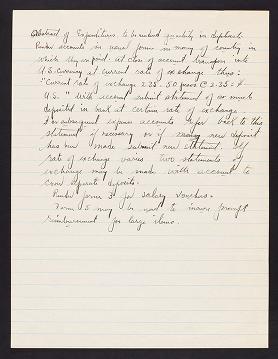 Abstract of Expenditures to be rendered monthly in duplicate.
Render accounts in usual form in money of country in
which they are paid. At close of account transfer into
U.S. Currency at current rate of exchange thus:
"Current rate of exchange 2.35. 50 pesos @ 2.35 = $
U.S." With account submit statement of so much
deposited in bank at certain rate of exchange
For subsequent expense accounts refer back to this
statement if necessary or if new deposit
has been made submit new statement. If
rate of exchange varies two statements of
exchange may be made with account to
cover separate deposits.
Render form 3 for salary vouchers.
Form 5 may be used to insure prompt
reimbursement for large items.